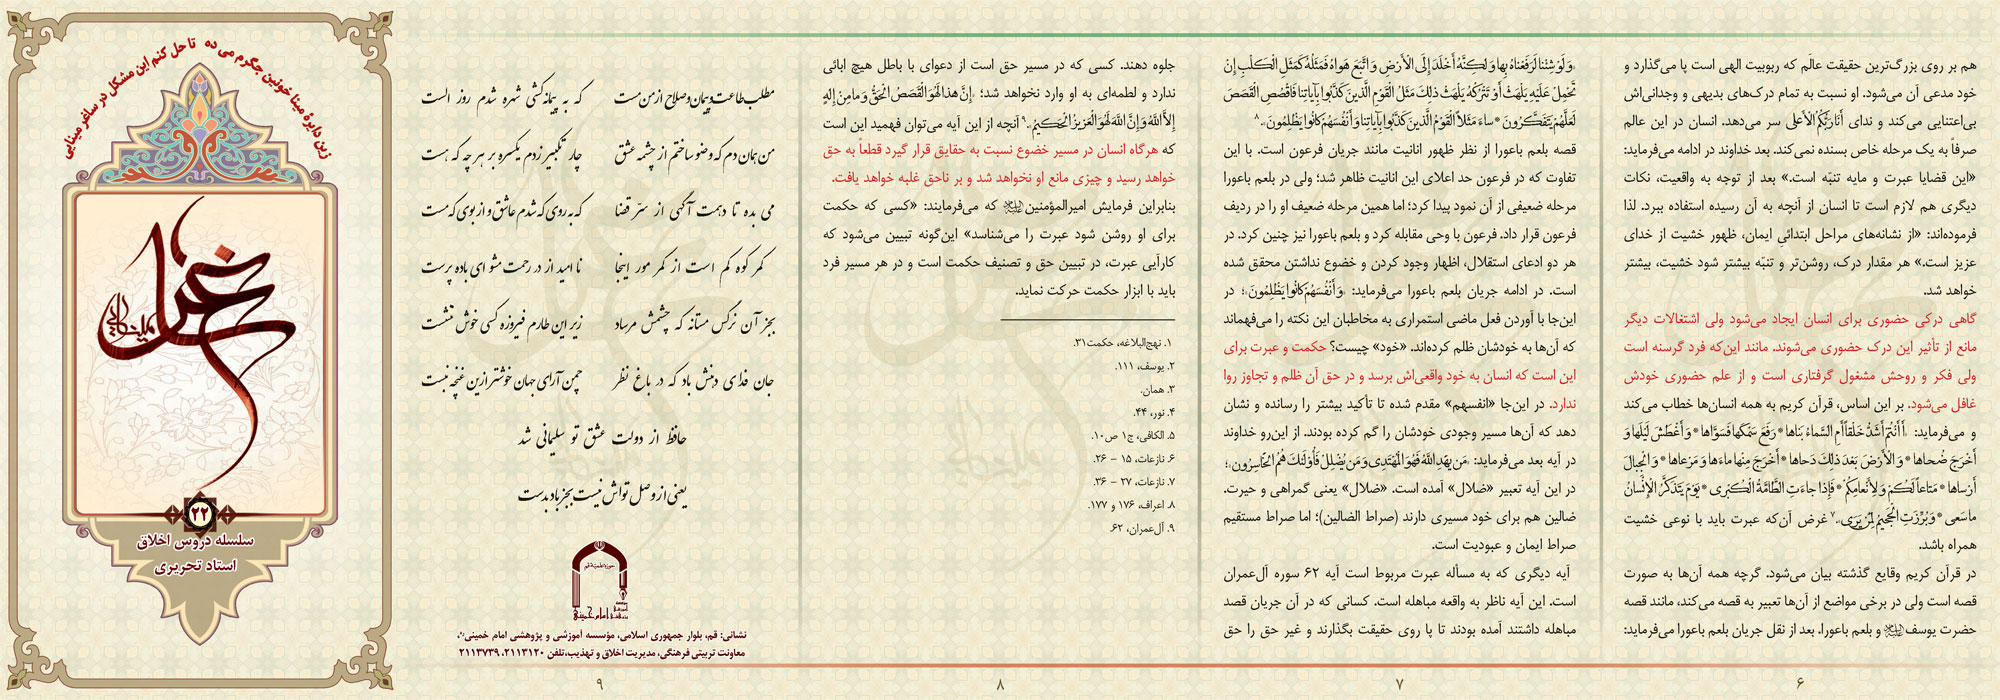 هم بر روی بزرگ‌ترین حقیقت عالَم که ربوبیت الهی است پا می‌گذارد و
خود مدعی آن می‌شود. او نسبت به تمام درک‌های بدیهی و وجدانی‌اش
بی‌اعتنایی می‌کند و ندای أَنَا رَبُّکُمُ الْأَعْلَی سر می‌دهد. انسان در این عالم
صرفاً به یک مرحله خاص بسنده نمی‌کند. بعد خداوند در ادامه می‌فرماید:
«این قضایا عبرت و مایه تنبّه است.» بعد از توجه به واقعیت، نکات
دیگری هم لازم است تا انسان از آنچه به آن رسیده استفاده ببرد. لذا
فرموده‌اند: «از نشانه‌های مراحل ابتدائیِ ایمان، ظهور خشیت از خدای
عزیز است.» هر مقدار درک، روشن‌تر و تنبّه بیشتر شود خشیت، بیشتر
خواهد شد.
گاهی درکی حضوری برای انسان ایجاد می‌شود ولی اشتغالات دیگر
مانع از تأثیر این درک حضوری می‌شوند. مانند این‌که فرد گرسنه است
ولی فکر و روحش مشغول گرفتاری است و از علم حضوری خودش
غافل می‌شود. بر این اساس، قرآن کریم به همه انسان‌ها خطاب می‌کند
و می‌فرماید: أَأَنْتُمْ أَشَدُّ خَلْقاً أَمِ السَّمَاءُ بَنَاهَا * رَفَعَ سَمْكَهَا فَسَوَّاهَا * وَ أَغْطَشَ لَيْلَهَا وَ
أَخْرَجَ ضُحَاهَا * وَ الْأَرْضَ بَعْدَ ذَلِكَ دَحَاهَا * أَخْرَجَ مِنْهَا مَاءَهَا وَ مَرْعَاهَا * وَ الْجِبَالَ
أَرْسَاهَا * مَتَاعاً لَكُمْ وَ لِأَنْعَامِكُمْ * فَإِذَا جَاءَتِ الطَّامَّةُ الْكُبْرَى * يَوْمَ يَتَذَكَّرُ الْإِنْسَانُ
مَا سَعَى * وَ بُرِّزَتِ الْجَحِيمُ لِمَنْ يَرَى.۷ غرض آن‌که عبرت باید با نوعی خشیت
همراه باشد.
در قرآن کریم وقایع گذشته بیان می‌شود. گرچه همه آن‌ها به صورت
قصه است ولی در برخی مواضع از آن‌ها تعبیر به قصه می‌کند، مانند قصه
حضرت یوسف و بلعم باعورا. بعد از نقل جریان بلعم باعورا می‌فرماید:
۶
وَ لَوْ شِئْنَا لَرَفَعْنَاهُ بِهَا وَ لَكِنَّهُ أَخْلَدَ إِلَى الْأَرْضِ وَ اتَّبَعَ هَوَاهُ فَمَثَلُهُ كَمَثَلِ الْكَلْبِ إِنْ
تَحْمِلْ عَلَيْهِ يَلْهَثْ أَوْ تَتْرُكْهُ يَلْهَثْ ذَلِكَ مَثَلُ الْقَوْمِ الَّذِينَ كَذَّبُوا بِآيَاتِنَا فَاقْصُصِ الْقَصَصَ
لَعَلَّهُمْ يَتَفَكَّرُونَ * سَاءَ مَثَلاً الْقَوْمُ الَّذِينَ كَذَّبُوا بِآيَاتِنَا وَ أَنْفُسَهُمْ كَانُوا يَظْلِمُونَ.۸
قصه بلعم باعورا از نظر ظهور انانیت مانند جریان فرعون است. با این
تفاوت که در فرعون حد اعلای این انانیت ظاهر شد؛ ولی در بلعم باعورا
مرحله ضعیفی از آن نمود پیدا کرد؛ اما همین مرحله ضعیف او را در ردیف
فرعون قرار داد. فرعون با وحی مقابله کرد و بلعم باعورا نیز چنین کرد. در
هر دو ادعای استقلال، اظهار وجود کردن و خضوع نداشتن محقق شده
است. در ادامه جریان بلعم باعورا می‌فرماید: وَ أَنْفُسَهُمْ كَانُوا يَظْلِمُونَ؛ در
این‌جا با آوردن فعل ماضی استمراری به مخاطبان این نکته را می‌فهماند
که آن‌ها به خودشان ظلم کرده‌اند. «خود» چیست؟ حکمت و عبرت برای
این است که انسان به خود واقعی‌اش برسد و در حق آن ظلم و تجاوز روا
ندارد. در این‌جا «انفسهم» مقدم شده تا تأکید بیشتر را رسانده و نشان
دهد که آن‌ها مسیر وجودی خودشان را گم کرده بودند. از این‌رو خداوند
در آیه بعد می‌فرماید: مَنْ يَهْدِ اللَّهُ فَهُوَ الْمُهْتَدِي وَ مَنْ يُضْلِلْ فَأُولَئِكَ هُمُ الْخَاسِرُونَ؛
در این آیه تعبیر «ضلال» آمده است. «ضلال» یعنی گمراهی و حیرت.
ضالین هم برای خود مسیری دارند (صراط الضالین)؛ اما صراط مستقیم
صراط ایمان و عبودیت است.
آیه دیگری که به مسأله عبرت مربوط است آیه ۶۲ سوره آل‌عمران
است. این آیه ناظر به واقعه مباهله است. کسانی که در آن جریان قصد
مباهله داشتند آمده بودند تا پا روی حقیقت بگذارند و غیر حق را حق
۷
جلوه دهند. کسی که در مسیر حق است از دعوای با باطل هیچ ابائی
ندارد و لطمه‌ای به او وارد نخواهد شد؛ إِنَّ هَذَا لَهُوَ الْقَصَصُ الْحَقُّ وَ مَا مِنْ إِلَهٍ
إِلاَّ اللَّهُ وَ إِنَّ اللَّهَ لَهُوَ الْعَزِيزُ الْحَكِيمُ.۹ آنچه از این آیه می‌توان فهمید این است
که هرگاه انسان در مسیر خضوع نسبت به حقایق قرار گیرد قطعاً به حق
خواهد رسید و چیزی مانع او نخواهد شد و بر ناحق غلبه خواهد یافت.
بنابراین فرمایش امیرالمؤمنین که می‌فرمایند: «کسی که حکمت
برای او روشن شود عبرت را می‌شناسد» این‌گونه تبیین می‌شود که
کارآیی عبرت، در تبیین حق و تصنیف حکمت است و در هر مسیر فرد
باید با ابزار حکمت حرکت نماید.
۱. نهج‌البلاغه، حکمت۳۱.
۲. یوسف، ۱۱۱.
۳. همان.
۴. نور، ۴۴.
۵. الکافی، ج۱ ص۱۰.
۶. نازعات، ۱۵ - ۲۶.
۷. نازعات، ۲۷ - ۳۶.
۸. اعراف، ۱۷۶ و ۱۷۷.
۹. آل‌عمران، ۶۲.
۸
مطلب طاعت و پیمان و صلاح از من مست که به پیمانه کشی شهره شدم روز الست
من همان دم که وضو ساختم از چشمه عشق چار تکبیر زدم یکسره بر هر چه که هست
می بده تا دهمت آگهی از سرّ قضا که به روی که شدم عاشق و از بوی که مست
کمر کوه کم است از کمر مور اینجا نا امید از در رحمت مشو ای باده پرست
بجز آن نرگس مستانه که چشمش مرساد زیر این طارم فیروزه کسی خوش ننشست
جان فدای دهنش باد که در باغ نظر چمن آرای جهان خوشتر ازین غنچه نبست
حافظ از دولت عشق تو سلیمانی شد
یعنی از وصل تواش نیست بجز باد بدست
حوزه علمیه قم
نشانی: قم، بلوار جمهوری اسلامی، مؤسسه آموزشی و پژوهشی امام خمینی
معاونت تربیتی فرهنگی، مدیریت اخلاق و تهذیب،تلفن ۲۱۱۳۱۲۰، ۲۱۱۳۷۳۹
۹
زین دایرهٔ مینا خونین جگرم می ده تا حل کنم این مشکل در ساغر مینایی
۲۲
سلسله دروس اخلاق
استاد تحریری